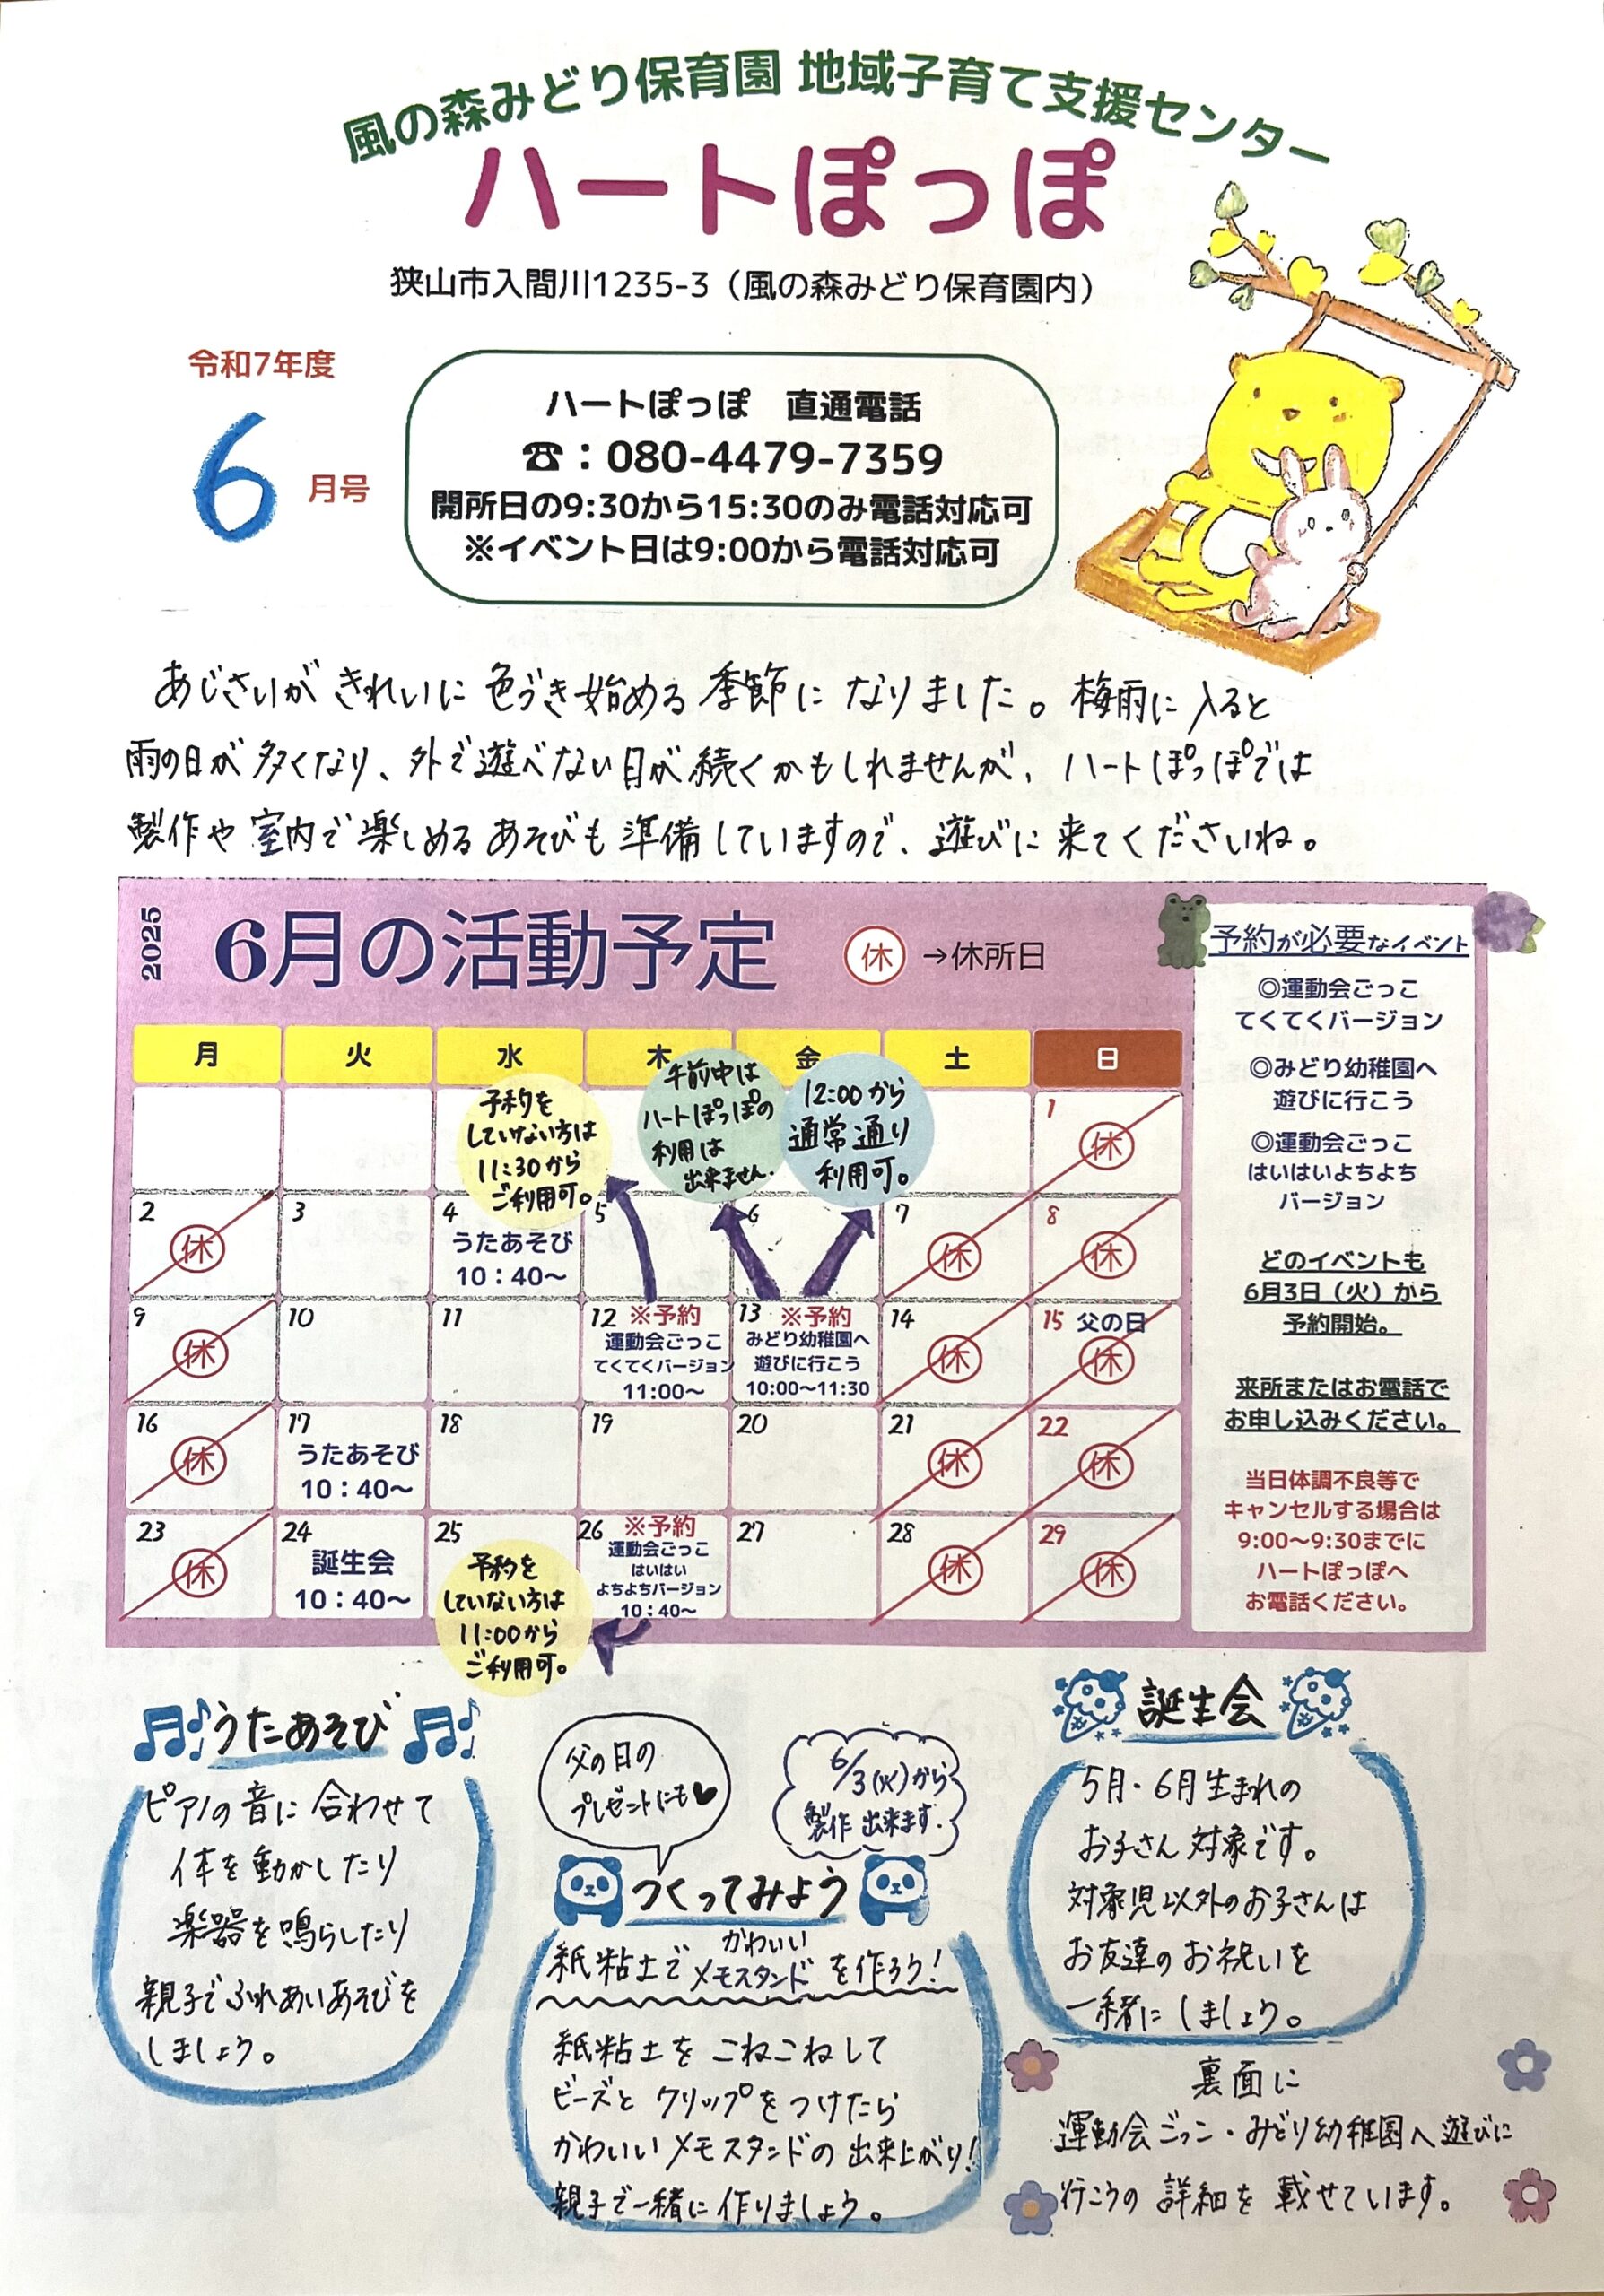 風の森みどり保育園 地域子育て支援センター
ハートぽっぽ
狭山市入間川1235-3（風の森みどり保育園内）
令和7年度
6
月号
ハートぽっぽ　直通電話
☎：080-4479-7359
開所日の9:30から15:30のみ電話対応可
※イベント日は9:00から電話対応可
あじさいが きれいに 色づき始める 季節に なりました。梅雨に 入ると
雨の日が 多くなり、外で遊べない日が続くかもしれませんが、ハートぽっぽでは
製作や 室内で 楽しめる あそびも 準備していますので、遊びに 来てくださいね。
2025
6月の活動予定
休 →休所日
月 火 水 木 金 土 日
予約を
していない方は
11:30から
ご利用可。
午前中は
ハートぽっぽの
利用は
出来ません.
12:00から
通常通り
利用可。
1
休
2
休
3
4
うたあそび
10：40～
5
6
7
休
8
休
9
休
10
11
12 ※予約
運動会ごっこ
てくてくバージョン
11:00～
13 ※予約
みどり幼稚園へ
遊びに行こう
10:00～11:30
14
休
15 父の日
休
16
休
17
うたあそび
10：40～
18
19
20
21
休
22
休
23
休
24
誕生会
10：40～
25
予約を
していない方は
11:00から
ご利用可。
26 ※予約
運動会ごっこ
はいはい
よちよちバージョン
10：40～
27
28
休
29
休
予約が必要なイベント
◎運動会ごっこ
てくてくバージョン
◎みどり幼稚園へ
遊びに行こう
◎運動会ごっこ
はいはいよちよち
バージョン
どのイベントも
6月3日（火）から
予約開始。
来所またはお電話で
お申し込みください。
当日体調不良等で
キャンセルする場合は
9:00～9:30までに
ハートぽっぽへ
お電話ください。
うたあそび
ピアノの音に 合わせて
体を動かしたり
楽器を鳴らしたり
親子で ふれあいあそびを
しましょう。
父の日の
プレゼントにも♥
6/3(火)から
製作 出来ます.
つくってみよう
紙粘土で かわいい メモスタンド を作ろう！
紙粘土を こねこねして
ビーズと クリップをつけたら
かわいいメモスタンドの 出来上がり！
親子で一緒に 作りましょう。
誕生会
5月・6月生まれの
お子さん 対象です。
対象児以外のお子さんは
お友達の お祝いを
一緒に しましょう。
裏面に
運動会ごっこ・みどり幼稚園へ遊びに
行こうの 詳細を 載せています。